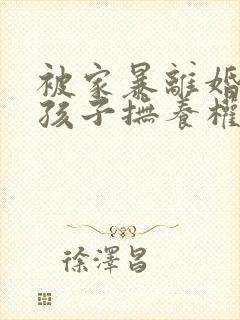 被家暴離婚
孩子撫養權
徐澤昌